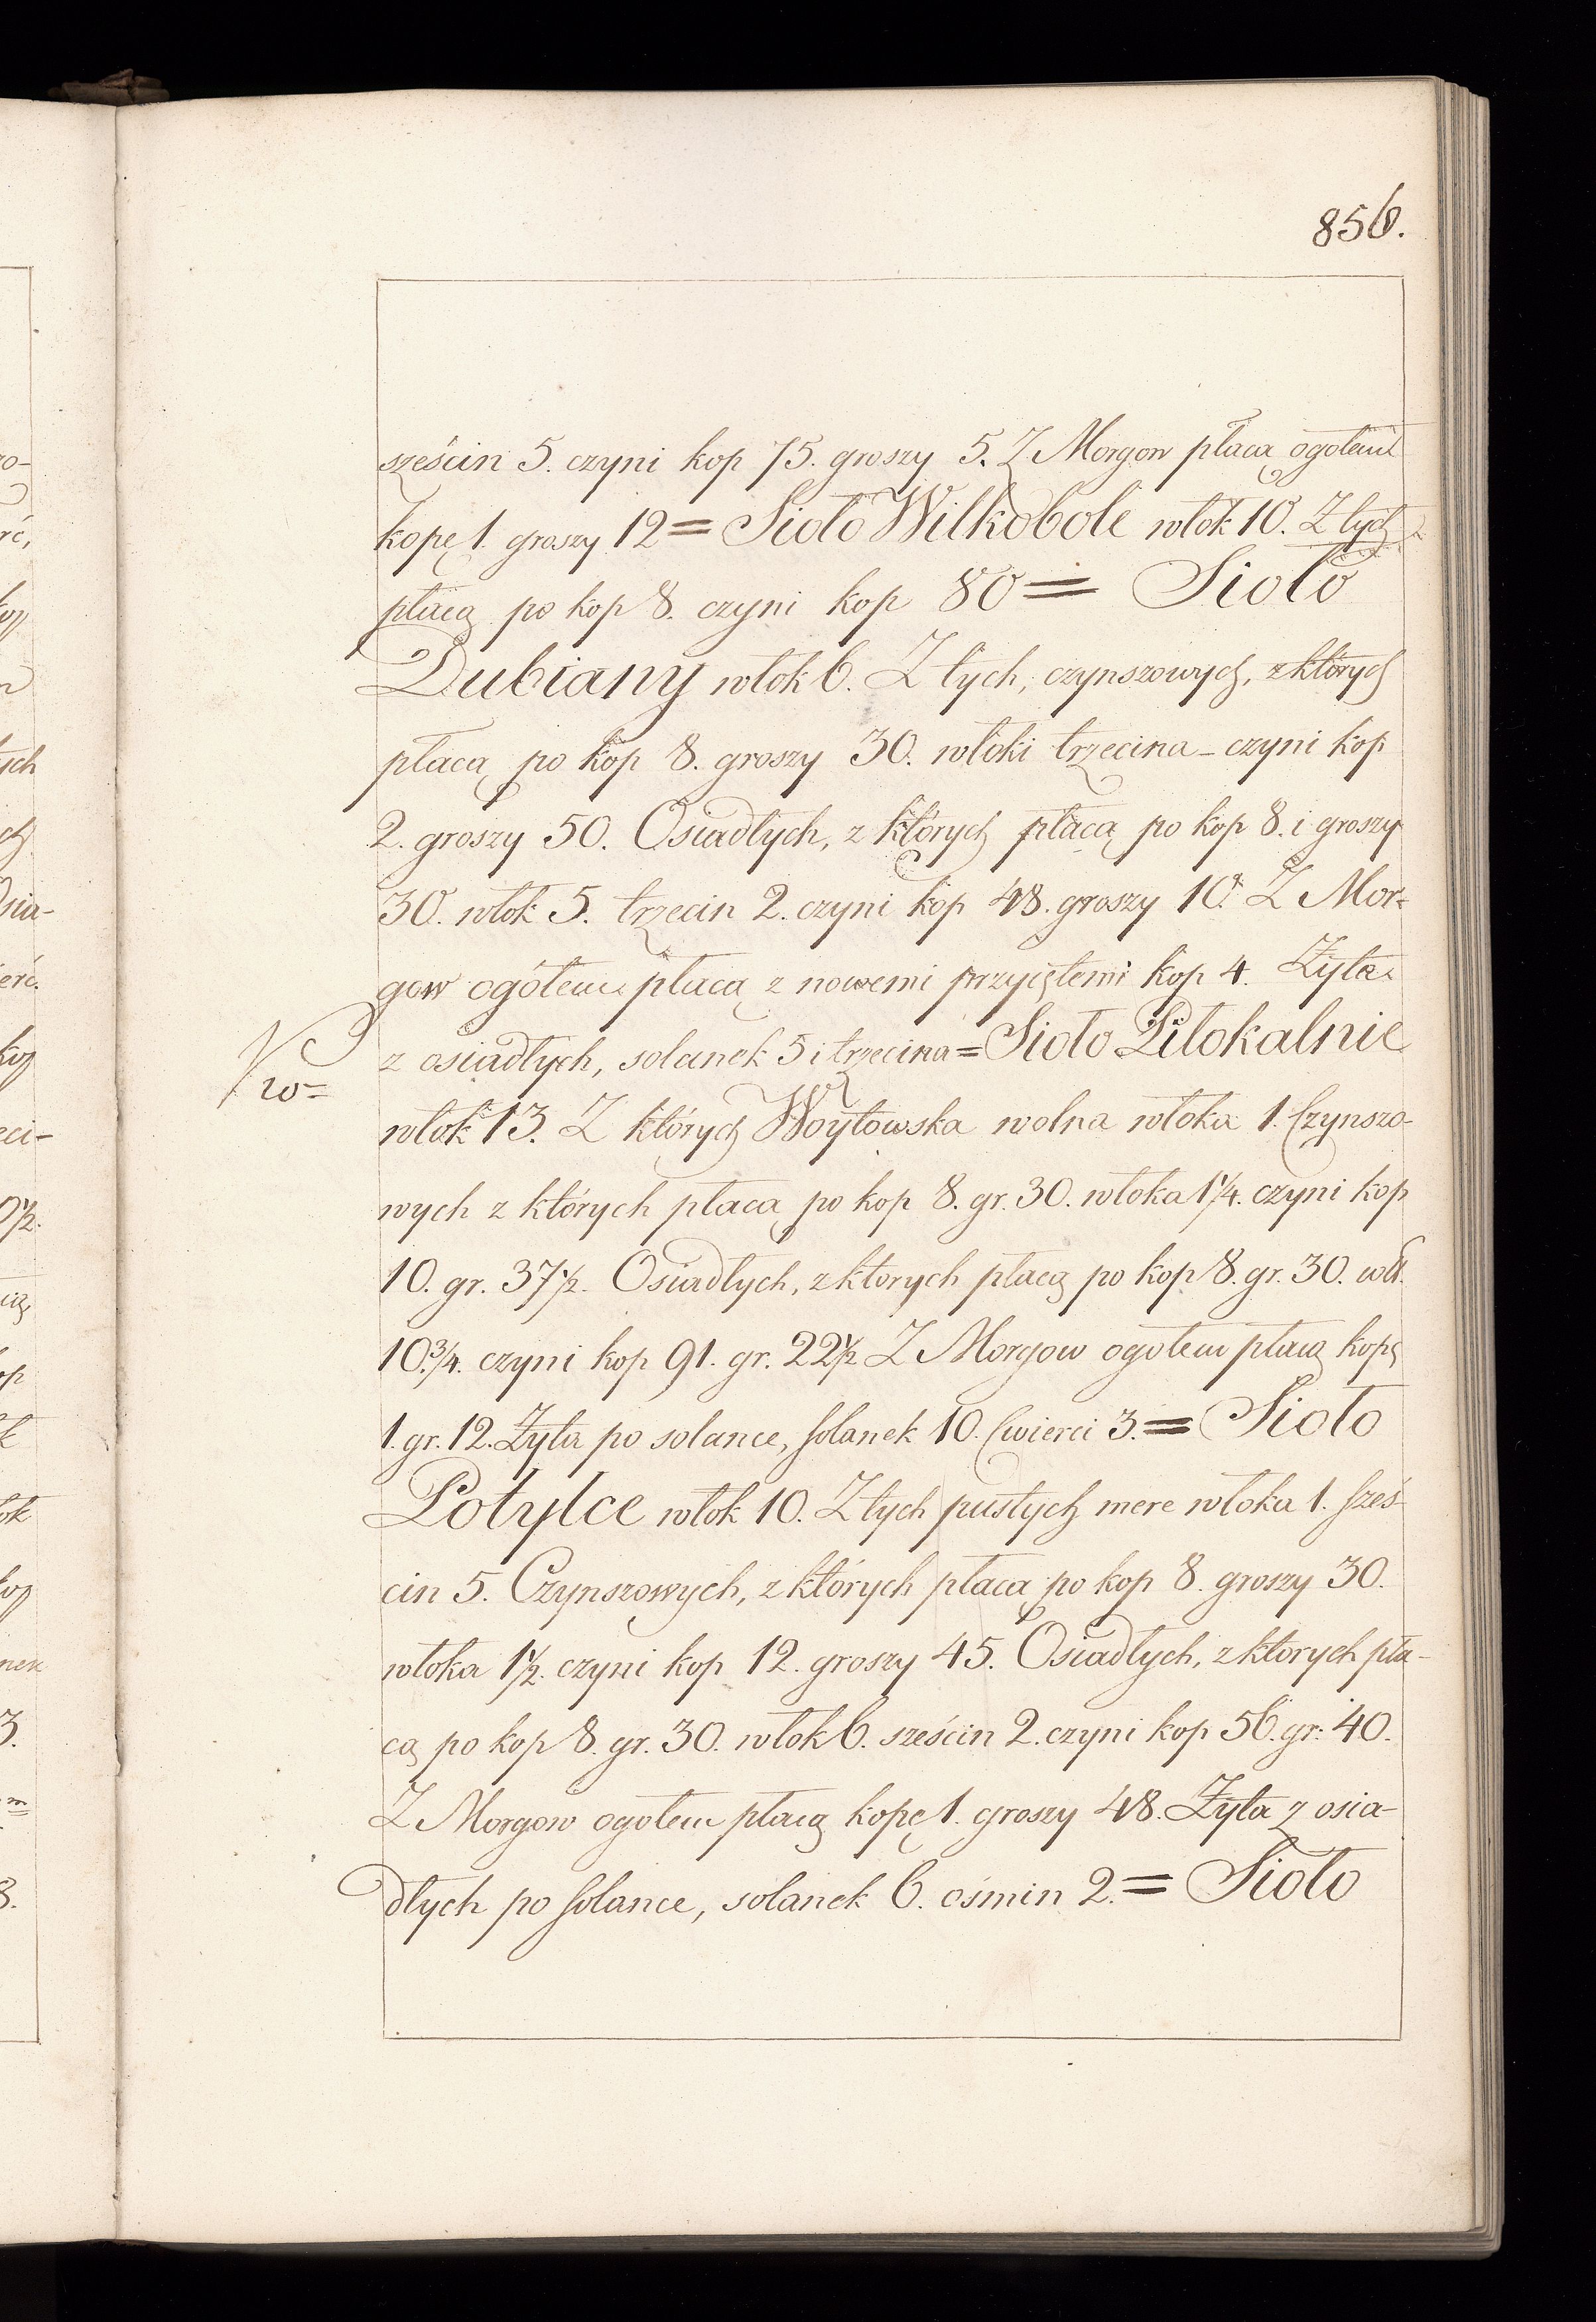 856.
sześcin 5. czyni kop 75. groszy 5. Z Morgow płacą ogołem
kopę 1. groszy 12 = Sioło Wilkobole włok 10. Z tych
płacą po kop 8. czyni kop 80 = Sioło
Dubiany włok 6. Z tych, czynszowych, z których
płacą po kop 8. groszy 30. włoki trzecina - czyni kop
2. groszy 50. Osiadłych, z których płacą po kop 8. i groszy
30. włok 5. trzecin 2. czyni kop 48. groszy 10. Z Mor-
gow ogółem płacą z nowemi przyiętemi kop 4. Żyta
z osiadłych, solanek 5 i trzecina = Sioło Pilokalnie
włok 13. Z których Woytowska wolna włoka 1. Czynszo-
wych z których płacą po kop 8. gr. 30. włoka 1 1/4. czyni kop
10. gr. 37 1/2. Osiadłych, z ktorych płacą po kop 8. gr. 30. wł.
10. 3/4. czyni kop 91. gr. 22 1/2 Z Morgow ogołem płacą kopę
1. gr. 12. Żyta po solance, solanek 10. Cwierci 3. = Sioło
Potylce włok 10. Z tych pustych mere włoka 1. sześ-
cin 5. Czynszowych, z których płacą po kop 8. groszy 30.
włoka 1 1/2. czyni kop 12. groszy 45. Osiadłych, z ktorych pła-
cą po kop 8. gr. 30. włok 6. sześcin 2. czyni kop 56. gr: 40.
Z Morgow ogołem płacą kopę 1. groszy 48. Żyta z osia-
dłych po solance, solanek 6. ośmin 2. = Sioło